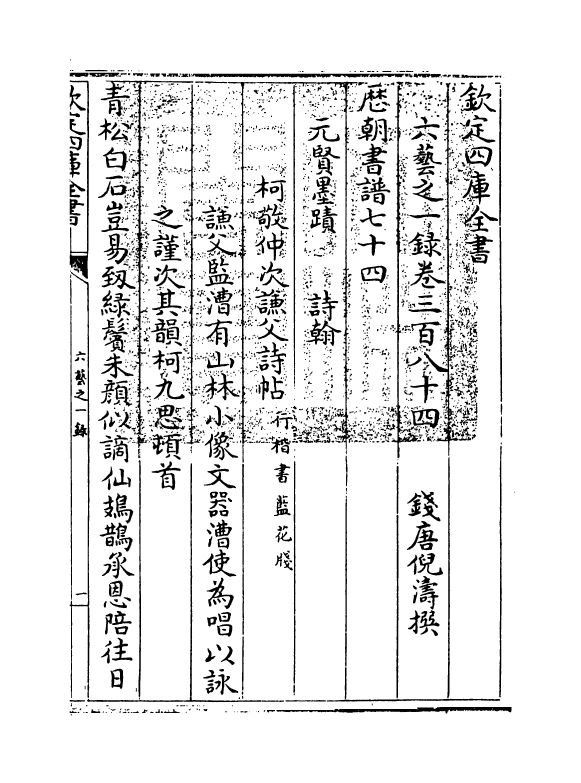 欽定四庫全書
六藝之一録卷三百八十四
錢唐倪濤撰
歴朝書譜七十四
元賢墨蹟 詩翰
柯敬仲次謙父詩帖 行楷書藍花牋
謙父監漕有山林小像文器漕使為唱以詠
之謹次其韻柯九思頓首
青松白石豈易致綠鬢朱顔似謫仙鳷鵲承恩陪往日
欽定四庫全書
六藝之一録